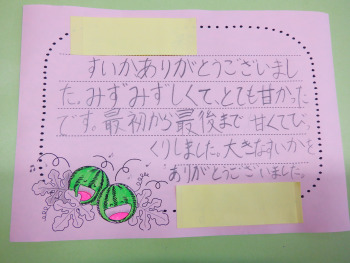 すいか、ありがとうございまし
た。みずみずしくて、とても甘かった
です。最初から最後まで甘くてびっ
くりしました。大きなすいかを
ありがとうございました。